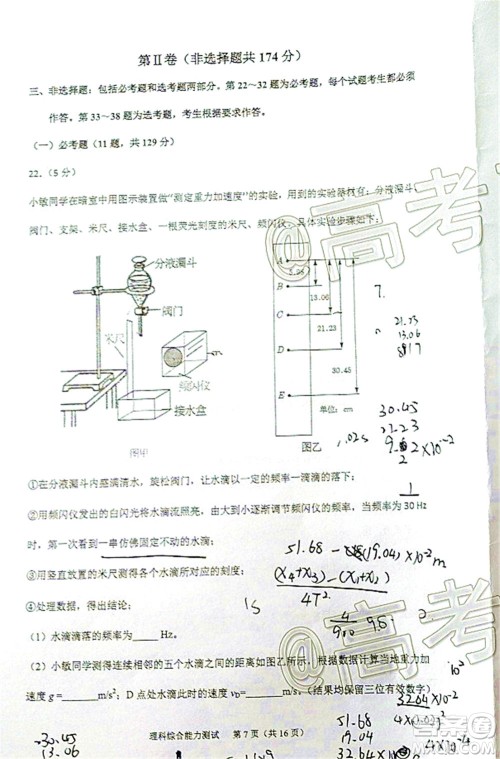 第Ⅱ卷（非选择题共174分）
三、非选择题：包括必考题和选考题两部分。第22～32题为必考题，每个试题考生都必须
作答。第33～38题为选考题，考生根据要求作答。
（一）必考题（11题，共129分）
22.（5分）
小敏同学在暗室中用图示装置做“测定重力加速度”的实验，用到的实验器材有：分液漏斗、
阀门、支架、米尺、接水盒、一根荧光刻度的米尺、频闪仪。具体实验步骤如下：
分液漏斗
阀门
米尺
频闪仪
接水盒
图甲
A
B
C
D
E
13.06
21.23
30.45
单位：cm
图乙
7.
21.23
13.06
817
30.45
21.23
.02s
×10-2
2
①在分液漏斗内盛满清水，旋松阀门，让水滴以一定的频率一滴滴的落下；
1
②用频闪仪发出的白闪光将水滴流照亮，由大到小逐渐调节频闪仪的频率，当频率为30 Hz
时，第一次看到一串仿佛固定不动的水滴；
51.68 - (19.04)×10-2 m
③用竖直放置的米尺测得各个水滴所对应的刻度；
(x4+x3)-(x1+x2)
4T2
④处理数据，得出结论：
1s
4
900
9.8
（1）水滴滴落的频率为_____Hz。
（2）小敏同学测得连续相邻的五个水滴之间的距离如图乙所示，根据数据计算当地重力加
速度g=_____m/s2；D点处水滴此时的速度vD=_____m/s。（结果均保留三位有效数字）
32.64×10-2
理科综合能力测试 第7页（共16页）
30.45
13.06
51.68
19.04
32.64
4×10-4